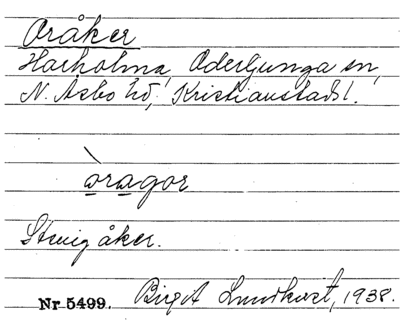 Oråker
Harholma, Oderljunga sn,
N. Åsbo hd, Kristianstads l.
òragor
Stenig åker.
Nr 5499. Birgit Lundkvist, 1938.